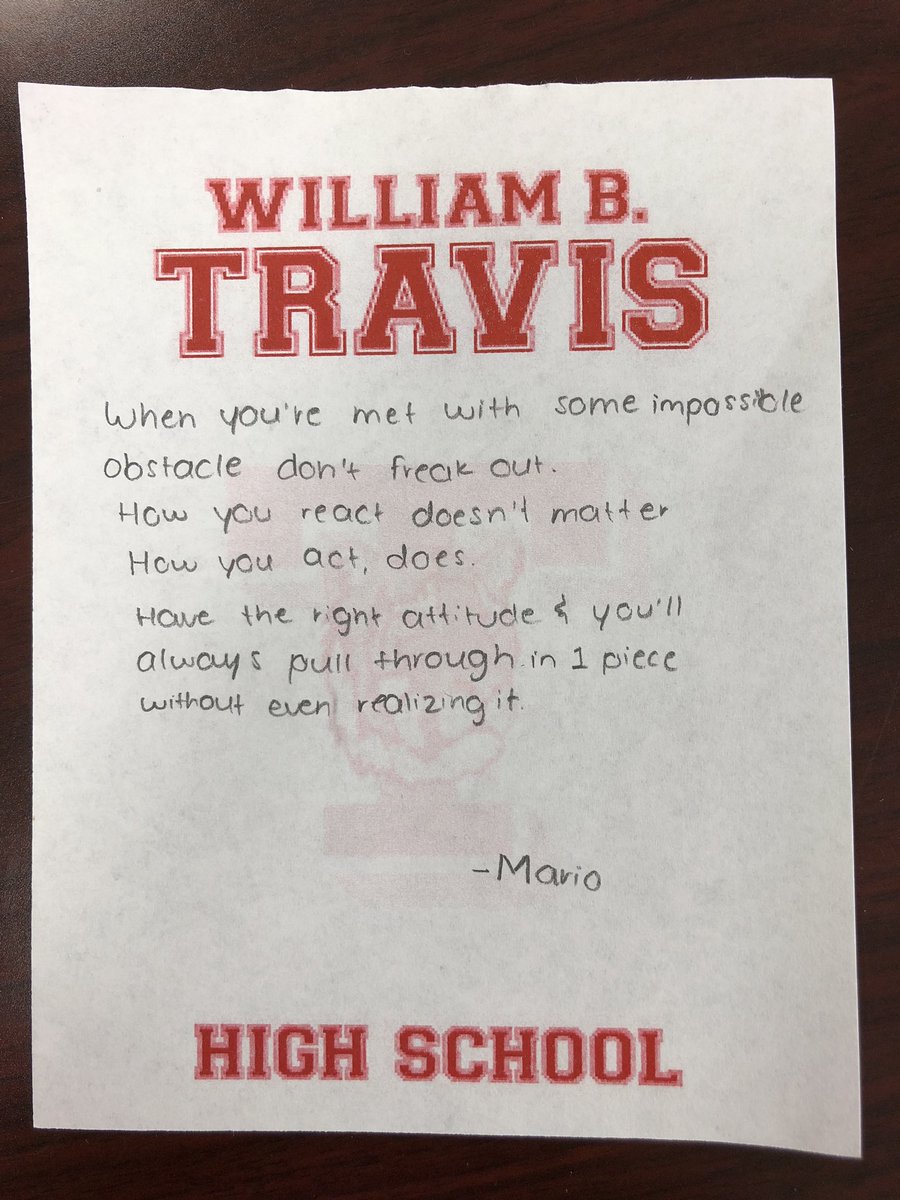 WILLIAM B.
TRAVIS
When you're met with some impossible
obstacle don't freak out.
How you react doesn't matter
How you act, does.
Have the right attitude & you'll
always pull through in 1 piece
without even realizing it.
-Mario
HIGH SCHOOL